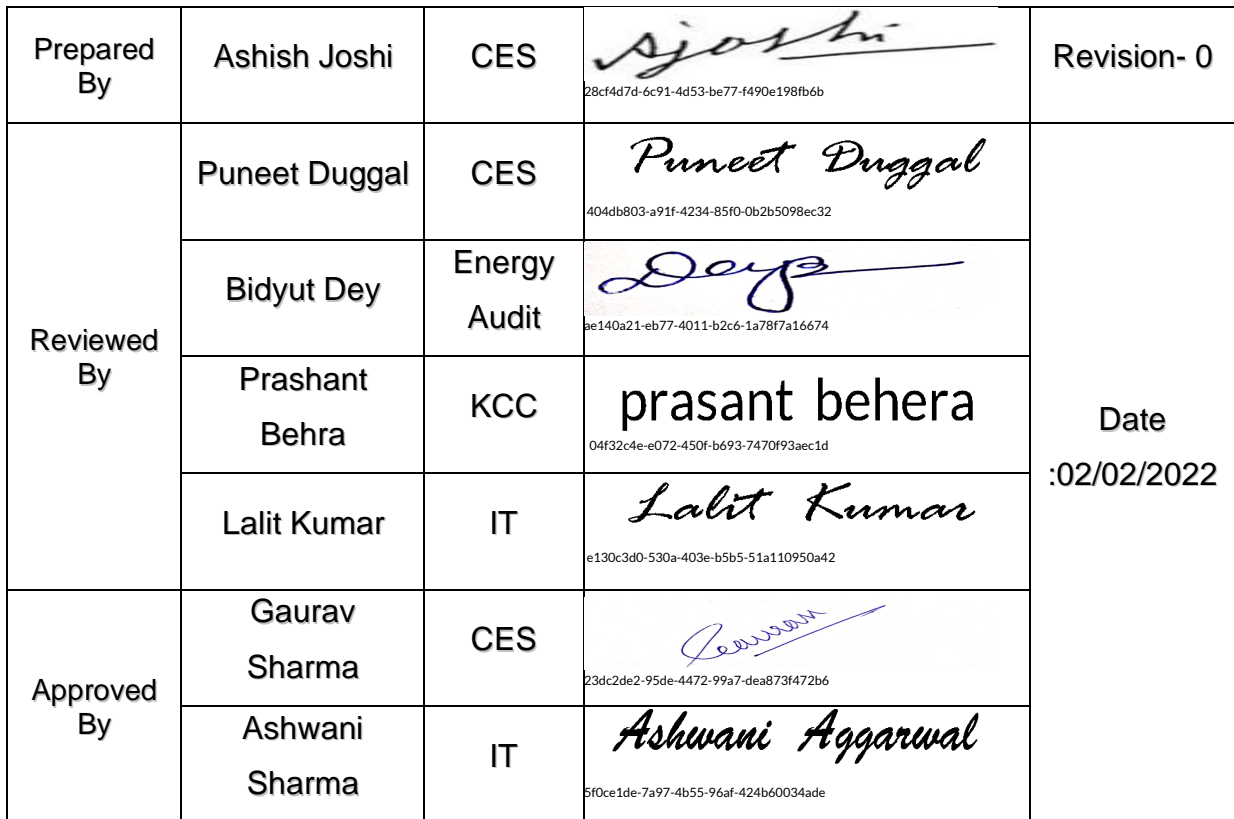 Prepared
By
Ashish Joshi
CES
Ajoshi
28cf4d7d-6c91-4d53-be77-f490e198fb6b
Revision- 0
Reviewed
By
Puneet Duggal
CES
Puneet Duggal
404db803-a91f-4234-85f0-0b2b5098ec32
Bidyut Dey
Energy
Audit
ae140a21-eb77-4011-b2c6-1a78f7a16674
Prashant
Behra
KCC
prasant behera
04f32c4e-e072-450f-b693-7470f93aec1d
Lalit Kumar
IT
Lalit Kumar
e130c3d0-530a-403e-b5b5-51a110950a42
Date
:02/02/2022
Approved
By
Gaurav
Sharma
CES
Gaurav
23dc2de2-95de-4472-99a7-dea873f472b6
Ashwani
Sharma
IT
Ashwani Aggarwal
5f0ce1de-7a97-4b55-96af-424b60034ade